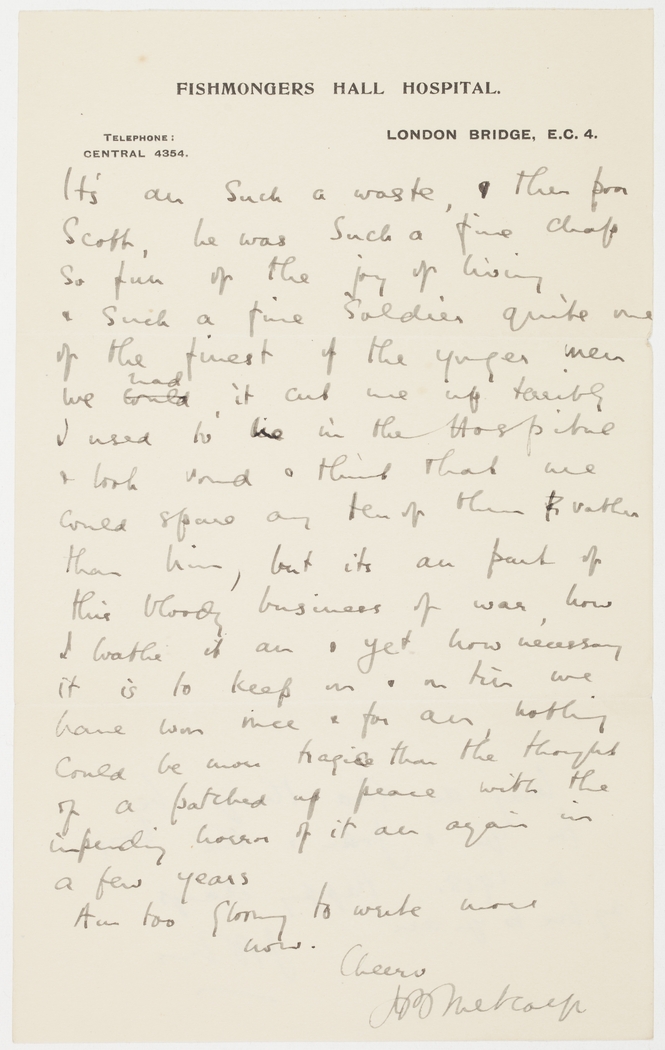 FISHMONGERS HALL HOSPITAL.
TELEPHONE:
CENTRAL 4354.
LONDON BRIDGE, E.C. 4.
It's all such a waste, & then poor
Scott, he was such a fine chap
so full of the joy of living
& such a fine soldier quite one
of the finest of the yunger men
we could had, it cut me up terribly
I used to lie in the Hospital
& look round & think that we
could spare any ten of them rather
than him, but its all part of
this bloody business of war, how
I loathe it all & yet how necessary
it is to keep on & on till we
have won once & for all, nothing
could be more tragic than the thought
of a patched up peace with the
impending horror of it all again in
a few years
Am too gloomy to write more
now.
Cheero
Metcalf